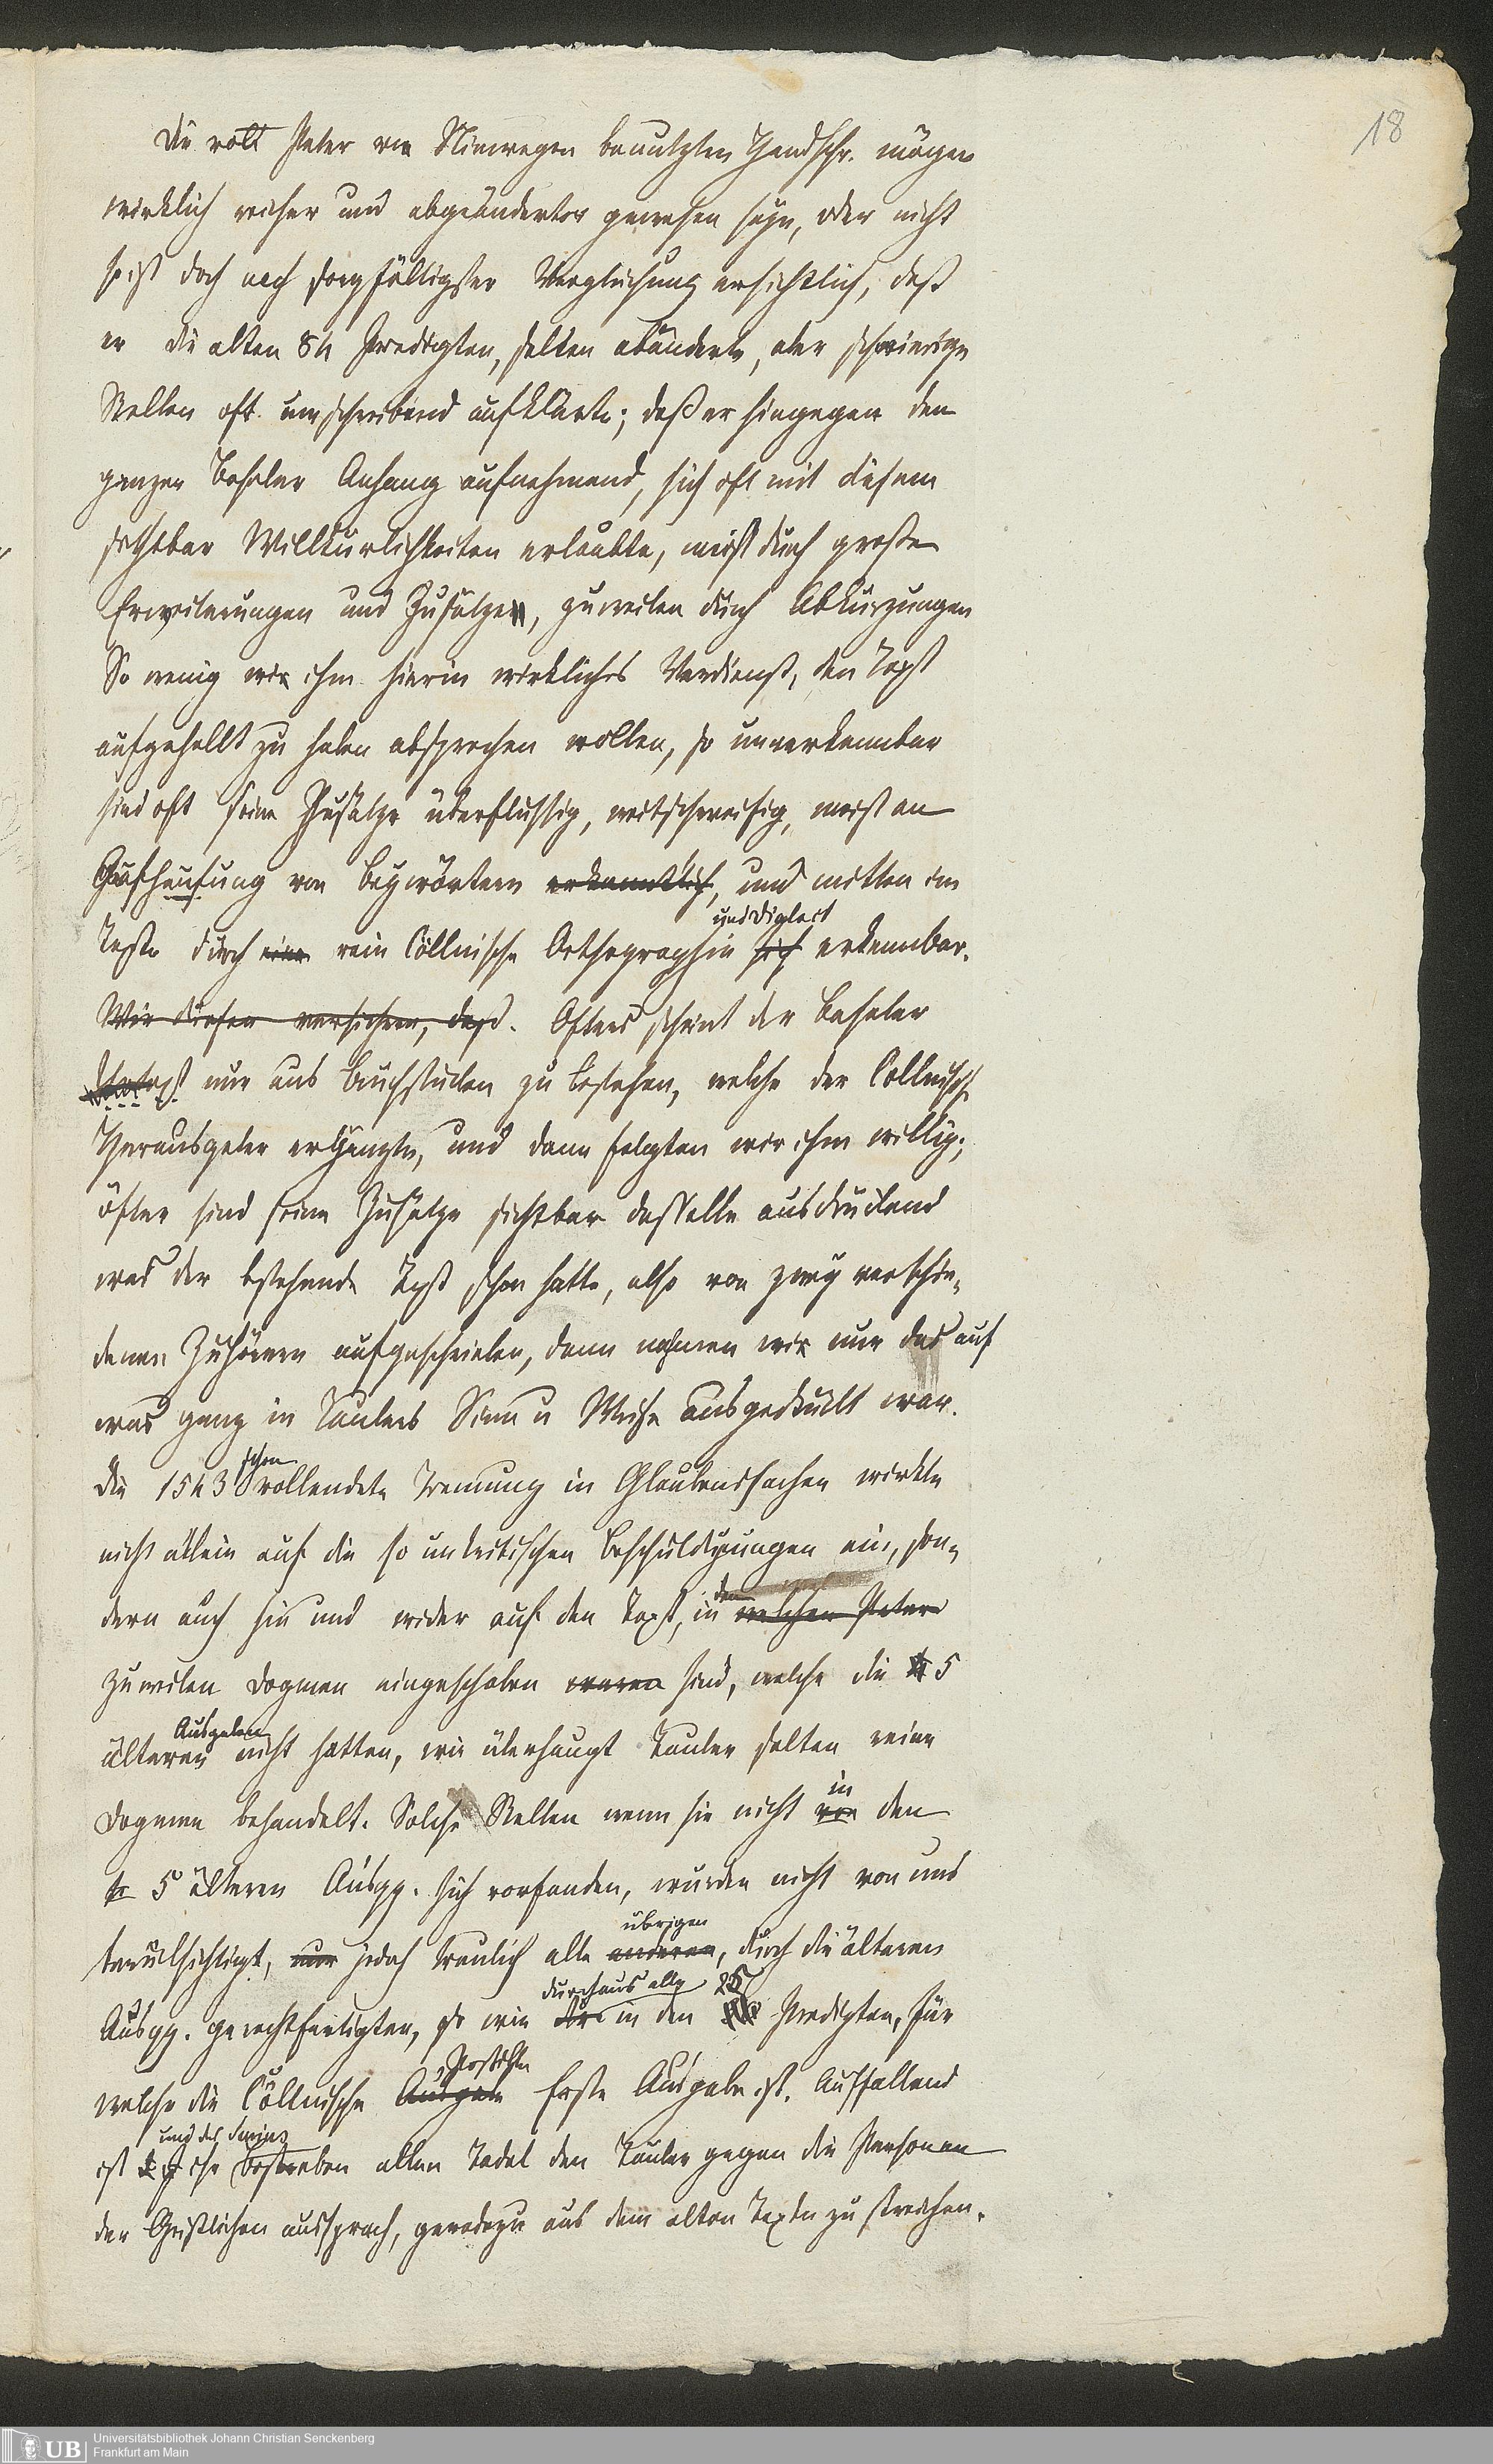 18
Die von Peter von Nimwegen benutzten Handschr. mögen
wirklich reicher und abgeänderter gewesen seyn, oder nicht
so ist doch nach sorgfältigster Vergleichung ersichtlich, daß
er die alten 84 Predigten, selten abänderte, aber schwierige
Stellen oft umschreibend aufklärte; daß er hingegen den
ganzen Baseler Anhang aufnehmend, sich oft mit diesem
sichtbar Willkürlichkeiten erlaubte, meist durch große
Erweiterungen und Zusätze, zuweilen durch Abkürzungen
So wenig wir ihm hierin wirkliches Verdienst, den Text
aufgehellt zu haben absprechen wollen, so unverkennbar
sind oft seine Zusätze überflüssig, weitschweifig, meist an
Aufhäufung von Beywörtern erkenntlich, und mitten im
und Dialect
Texte durch eine rein Cöllnische Orthographie sich erkennbar.
Wir dürfen versichern, daß. Öfters scheint der Baseler
Text nur aus Bruchstücken zu bestehen, welche der Collnische
Herausgeber ergänzte, und dann folgten wir ihm willig;
öfter sind seine Zusätze sichtbar dasselbe ausdrückend
was der bestehende Text schon hatte, also von zwey verschie-
denen Zuhörern aufgeschrieben, dann nahmen wir nur das auf
was ganz in Taulers Sinn u Weise ausgedrückt war.
schon
Die 1543 vollendete Trennung in Glaubenssachen wirkte
nicht allein auf die so unkritischen Beschuldigungen ein, son-
dern auch hin und wider auf den Text, in dem welchen Peter
zuweilen Dogmen eingeschoben waren sind, welche die 5
Ausgaben
älteren nicht hatten, wie überhaupt Tauler selten reine
in
Dogmen behandelt. Solche Stellen wenn sie nicht von den
5 älteren Ausgg. sich vorfanden, wurden nicht von uns
übrigen
berücksichtigt, nur jedoch treulich alle anderen, durch die älteren
durchaus alle 25
Ausgg. gerechtfertigten, so wie die in den Predigten, für
welche die Cöllnische Ausgabe Erste Ausgabe ist. Auffallend
und des Surius
ist ihr Bestreben allen Tadel den Tauler gegen die Personen
der Geistlichen aussprach, geradezu aus dem alten Texte zu streichen.
Universitätsbibliothek Johann Christian Senckenberg
Frankfurt am Main
UB